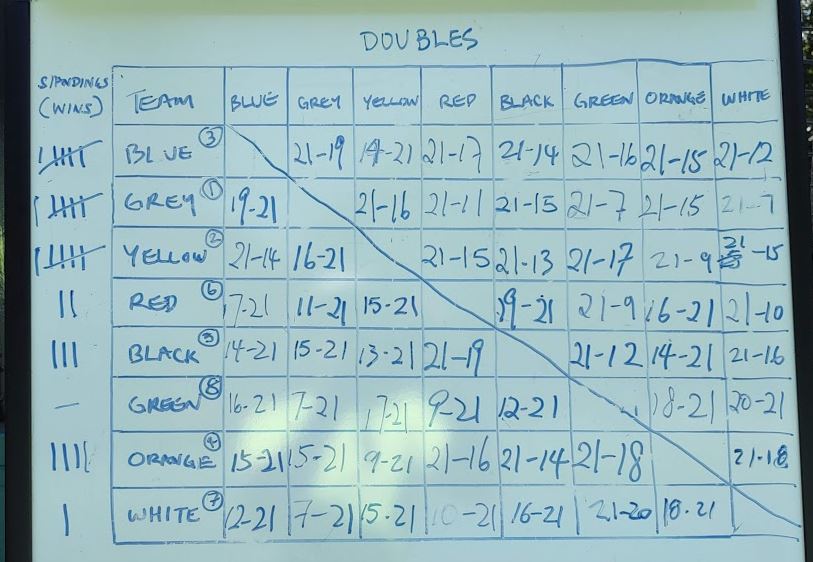 DOUBLES
STANDINGS (WINS) TEAM BLUE GREY YELLOW RED BLACK GREEN ORANGE WHITE
BLUE 3 21-19 14-21 21-17 21-14 21-16 21-15 21-12
GREY 1 19-21 21-16 21-11 21-15 21-7 21-15 21-7
YELLOW 2 21-14 16-21 21-15 21-13 21-17 21-9 21-15
|| RED 6 17-21 11-21 15-21 19-21 21-9 16-21 21-10
||| BLACK 5 14-21 15-21 13-21 21-19 21-12 14-21 21-16
— GREEN 8 16-21 7-21 17-21 9-21 12-21 18-21 20-21
|||| ORANGE 4 15-21 15-21 9-21 21-16 21-14 21-18 21-18
| WHITE 7 12-21 7-21 15-21 10-21 16-21 21-20 18-21